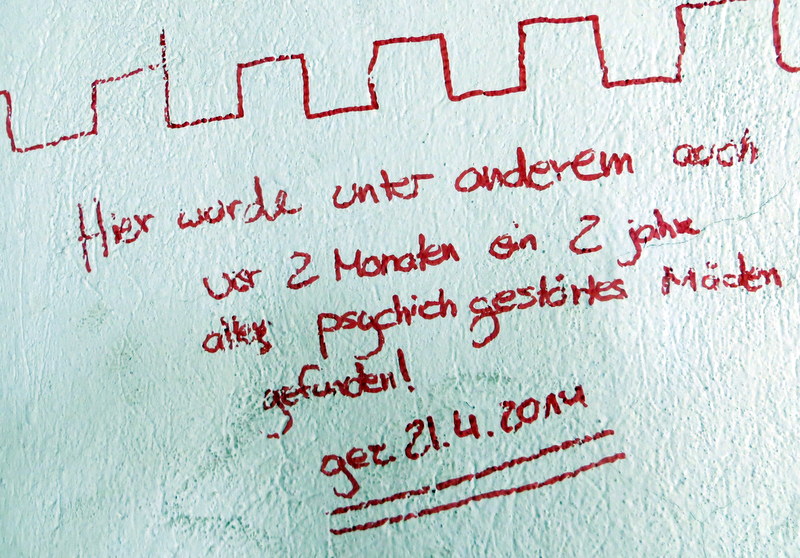 Hier wurde unter anderem auch
vor 2 Monaten ein 2 jahre
altes psychich gestörtes Mäden
gefunden!
gez. 21.4.2014